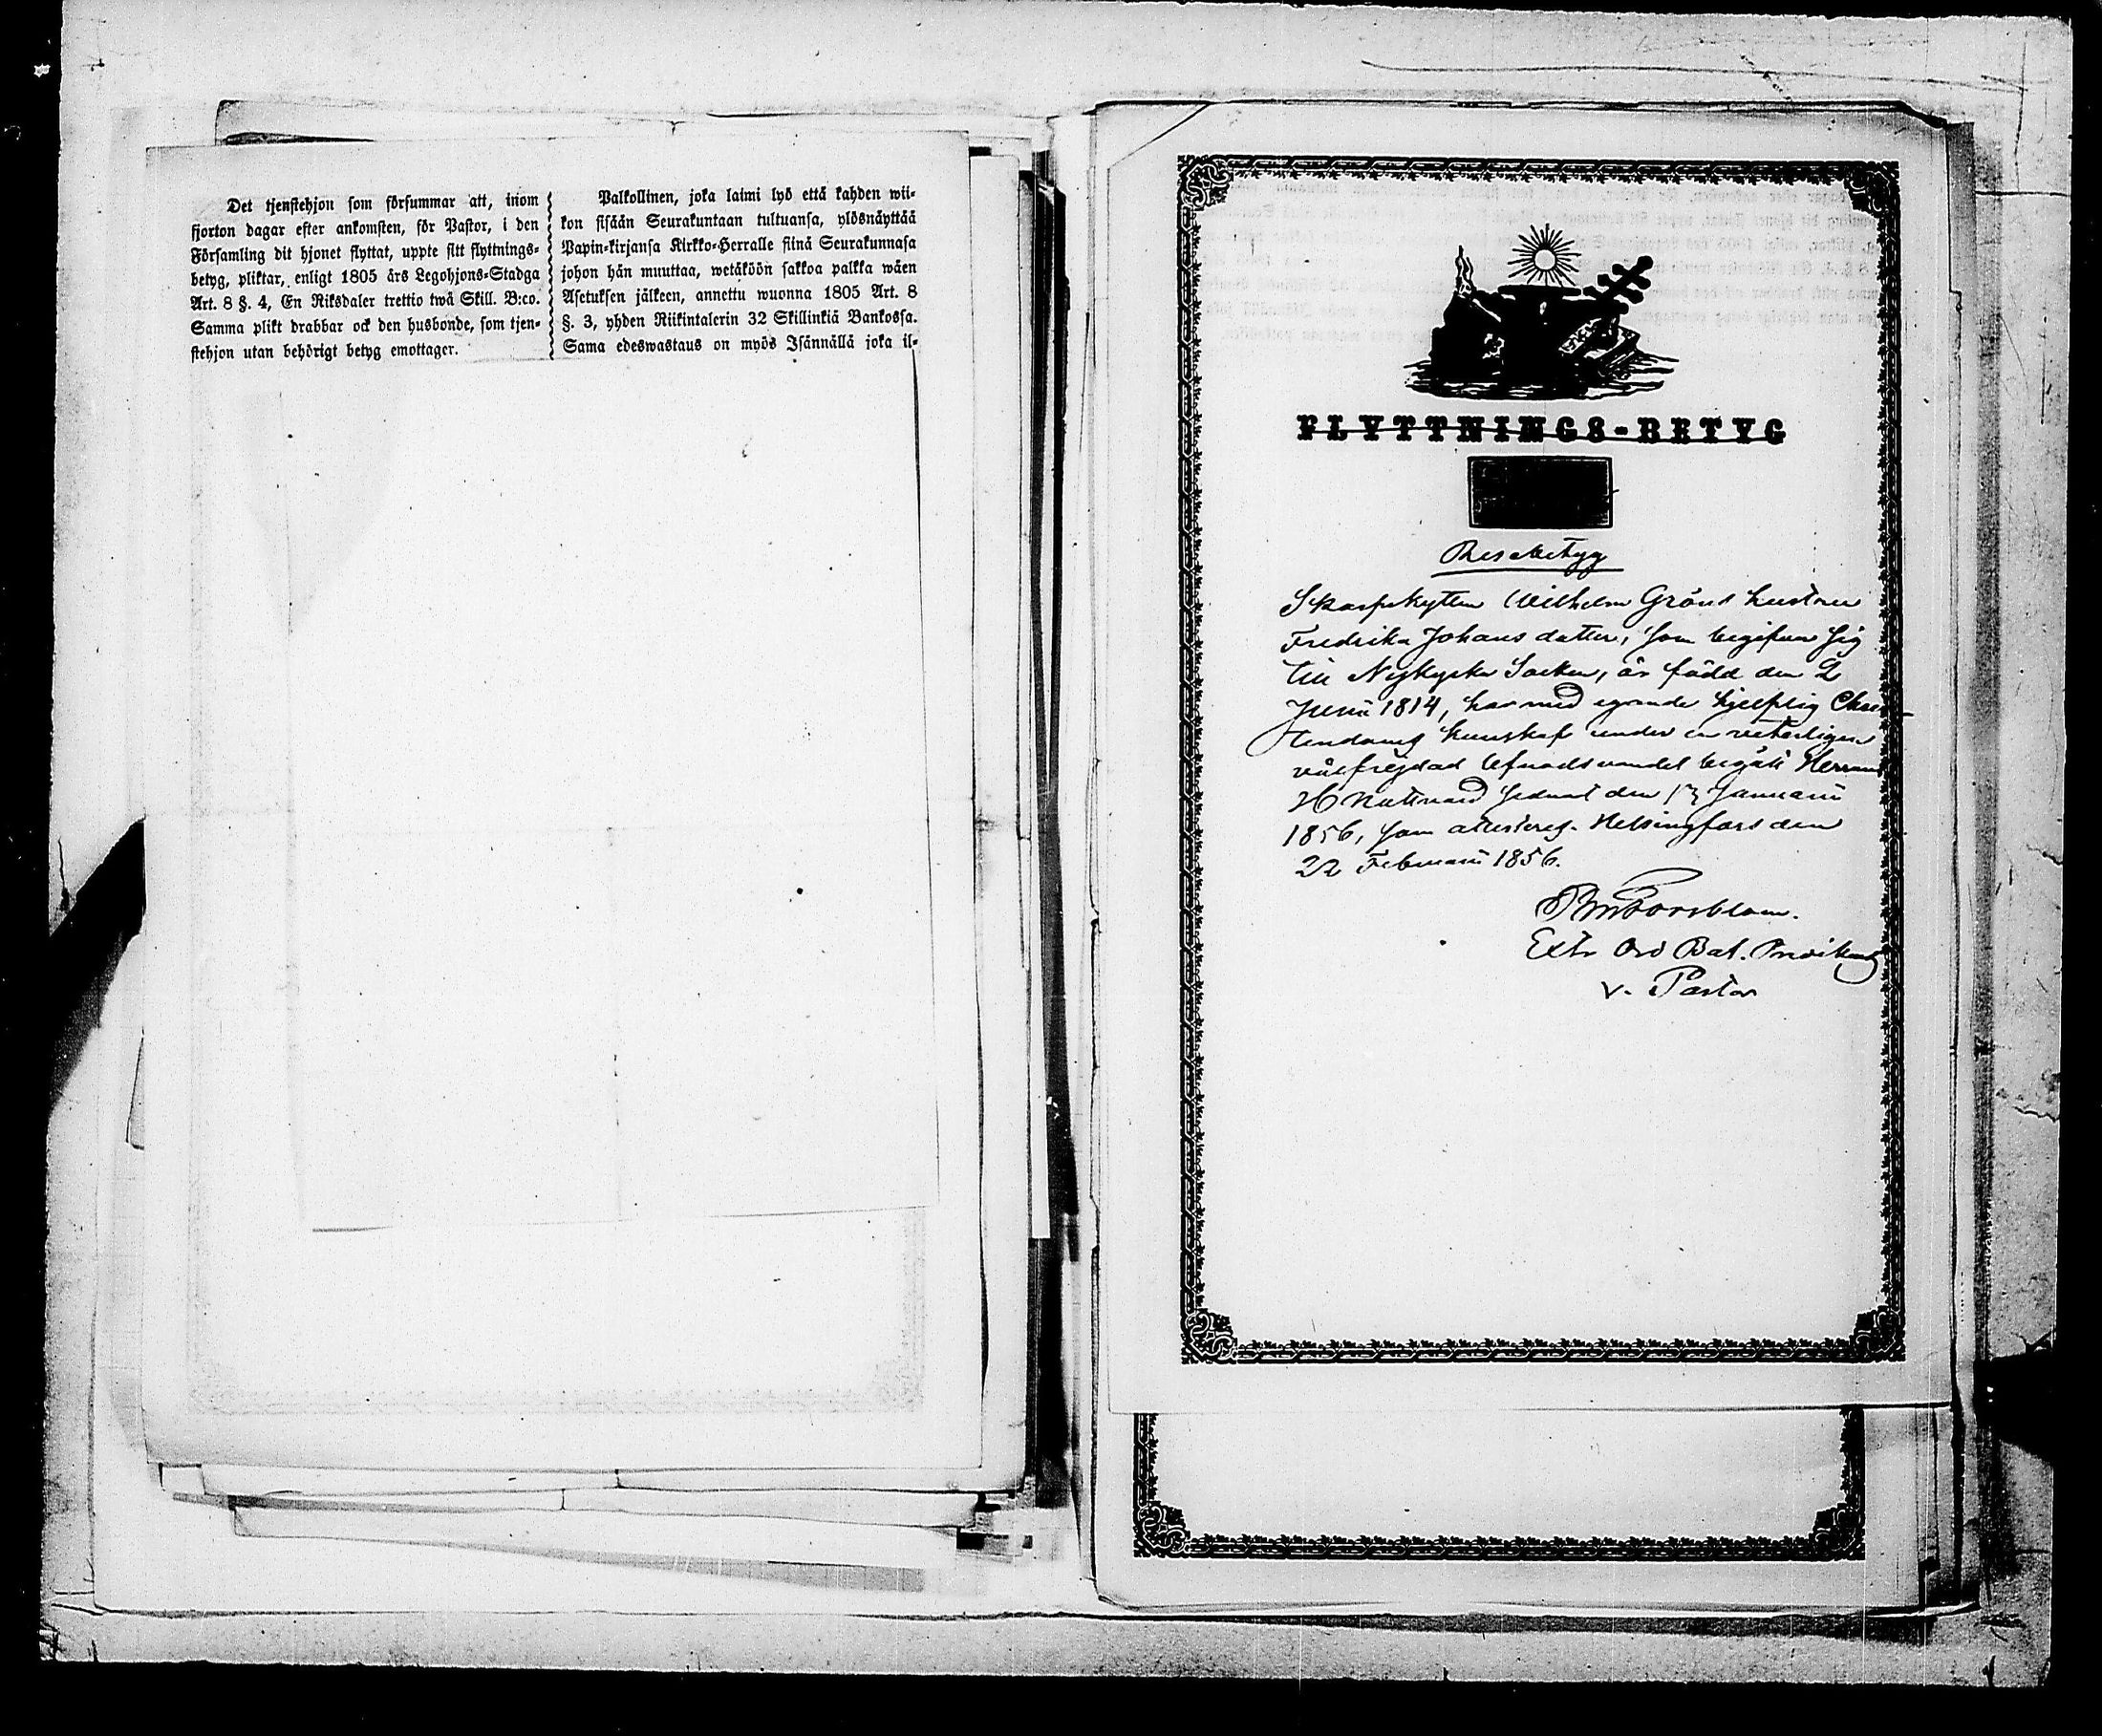 Det tjenstehjon som försummar att, inom
fjorton dagar efter ankomsten, för Pastor, i den
Församling dit hjonet flyttat, uppte sitt flyttnings-
betyg, pliktar, enligt 1805 års Legohjons-Stadga
Art. 8 §. 4, En Riksdaler trettio twå Skill. B:co.
Samma plikt drabbar ock den husbonde, som tjen-
stehjon utan behörigt betyg emottager.
Palkollinen, joka laimi lyö että kahden wii-
kon sisään Seurakuntaan tultuansa, ylösnäyttää
Papin-kirjansa Kirkko-Herralle siinä Seurakunnasa
johon hän muuttaa, wetäköön sakkoa palkka wäen
Asetuksen jälkeen, annettu wuonna 1805 Art. 8
§. 3, yhden Riikintalerin 32 Skillinkiä Bankossa.
Sama edeswastaus on myös Isännällä joka il-
FLYTTNINGS-BETYG
Resebetyg
Skarpskytten Wilhelm Gröns hustru
Fredrika Johansdotter, som begifver sig
till Nykyrka Socken, är född den 2
Junii 1814, har med egande hjelplig Chris-
tendoms kunskap under en
välfrejdad lefnadsvandel begått Herrans
H Nattvard sednast den 13 Januarii
1856, som attesteras. Helsingfors den
22 Februarii 1856.
Forsblom.
Extr Ord Bat. Predikant
v. Pastor